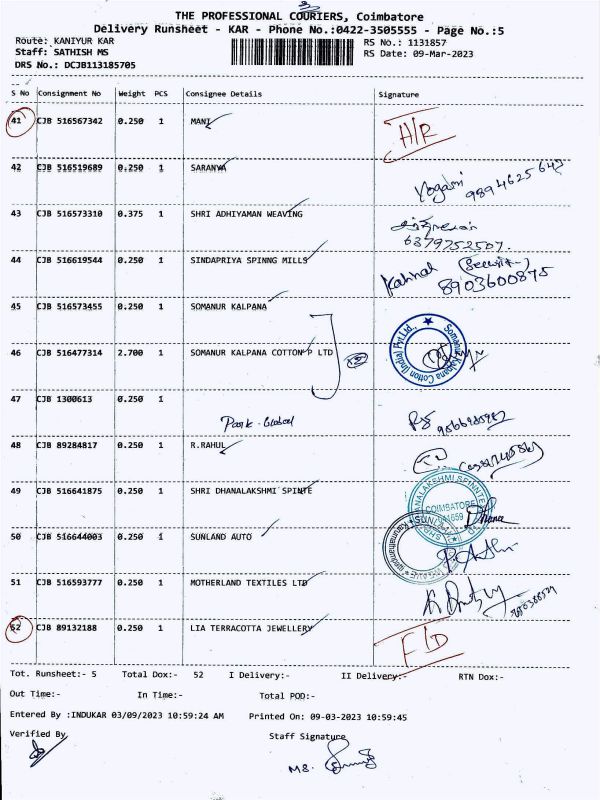 THE PROFESSIONAL COURIERS, Coimbatore
Delivery Runsheet - KAR - Phone No.:0422-3505555 - Page No.:5
Route: KANIYUR KAR
RS No.: 1131857
Staff: SATHISH MS
RS Date: 09-Mar-2023
DRS No.: DCJB113185705
S No Consignment No Weight PCS Consignee Details Signature
41 CJB 516567342 0.250 1 MANI
42 CJB 516519689 0.250 1 SARANYA
43 CJB 516573310 0.375 1 SHRI ADHIYAMAN WEAVING
6379752507.
44 CJB 516619544 0.250 1 SINDAPRIYA SPINNG MILLS
8903600875
45 CJB 516573455 0.250 1 SOMANUR KALPANA
Somanur Kalpana Cotton (India) Pvt.Ltd.,
46 CJB 516477314 2.700 1 SOMANUR KALPANA COTTON P LTD
47 CJB 1300613 0.250 1
48 CJB 89284817 0.250 1 R.RAHUL
49 CJB 516641875 0.250 1 SHRI DHANALAKSHMI SPINTE
COIMBATORE
Dhana
50 CJB 516644003 0.250 1 SUNLAND AUTO
51 CJB 516593777 0.250 1 MOTHERLAND TEXTILES LTD
52 CJB 89132188 0.250 1 LIA TERRACOTTA JEWELLERY
Tot. Runsheet:- 5 Total Dox:- 52 I Delivery:- II Delivery:- RTN Dox:-
Out Time:- In Time:- Total POD:-
Entered By :INDUKAR 03/09/2023 10:59:24 AM Printed On: 09-03-2023 10:59:45
Verified By
Staff Signature
MS.